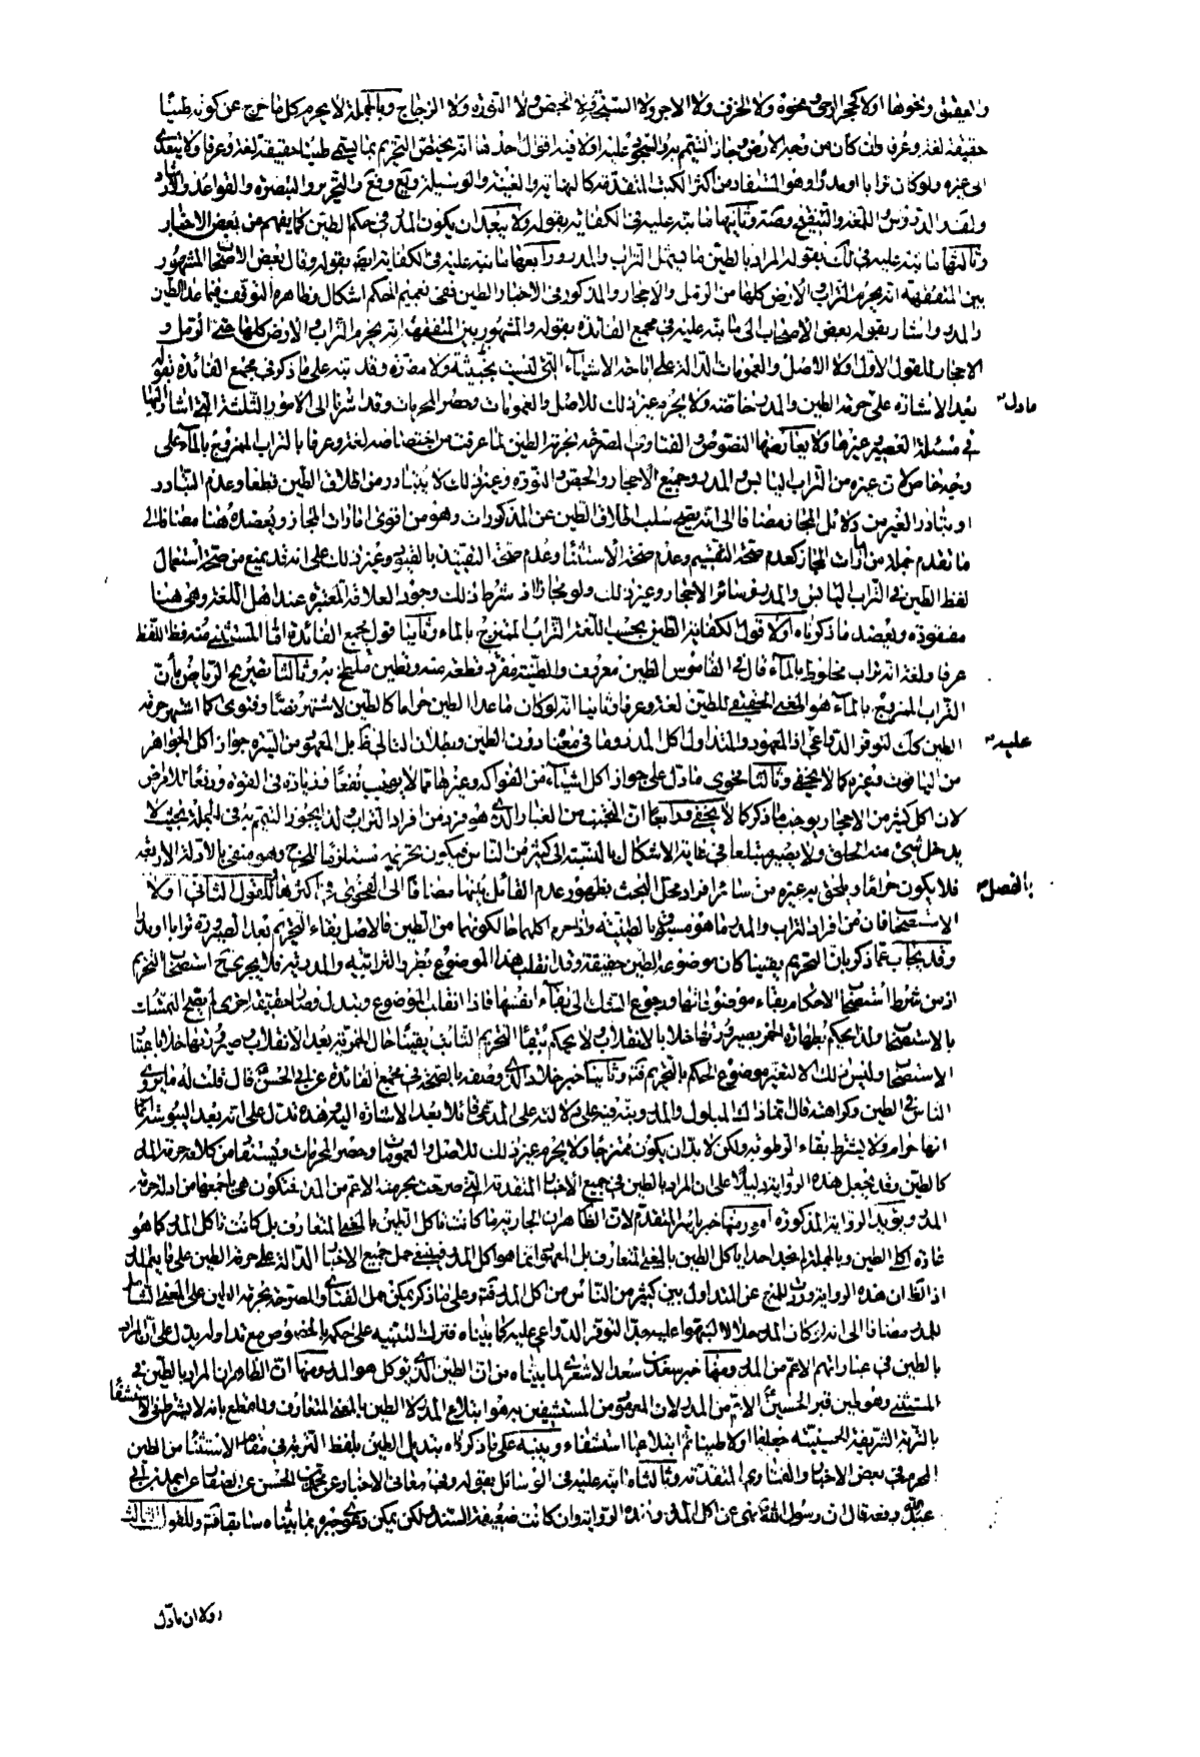 والعقيق ونحوها ولا كحجر الرحى ونحوه ولا الخزف ولا الاجر ولا السبخ ولا الجص ولا النورة ولا الزجاج وبالجملة لا يحرم كل ما خرج عن كونه طينا
حقيقة لغة وعرفا وان كان من وجه الارض وجاز التيمم به والسجود عليه اولا فيه اقوال احدها انه يختص التحريم بما يسمى طينا حقيقة لغة وعرفا ولا يتعدى
الى غيره ولو كان ترابا او مدرا وهو المستفاد من اكثر الكتب المتقدمة كالنهاية والغنية والوسيلة ويع وفع والتحرير والتبصرة والقواعد والارشاد
وثانيها ما نبه عليه في الكفاية بقوله ولا يبعد ان يكون المدر في حكم الطين كما يفهم من بعض الاخبار
وثالثها ما نبه عليه في لك بقوله المراد بالطين ما يشمل التراب والمدر ورابعها ما نبه عليه في الكفاية ايضا بقوله وقال بعض الاصحاب المشهور
بين المتفقهة انه يحرم التراب والارض كلها من الرمل والاحجار والمذكور في الاخبار الطين ففي تعميم الحكم اشكال وظاهره التوقف فيما عدا الطين
والمدر واشار بقوله بعض الاصحاب الى ما نبه عليه في مجمع الفائدة بقوله والمشهور بين المتفقهة انه يحرم التراب والارض كلها حتى الرمل و
الاحجار للقول الاول اولا الاصل والعمومات الدالة على اباحة الاشياء التي ليست بخبيثة ولا مضرة وقد نبه على ما ذكر في مجمع الفائدة بقوله
بعد الاشارة على حرمة الطين والمدر خاصة ولا يحرم غير ذلك للاصل والعمومات وحصر المحرمات وقد اشرنا الى الامور الثلثة التي اشار اليها
مادل
في مسئلة العصير وغيرها ولا يعارضها النصوص والفتاوى المصرحة بحرمة الطين لما عرفت من اختصاصه لغة وعرفا بالتراب الممزوج بالماء على
وجه خاص لان غيره من التراب اليابس والمدر وجميع الاحجار والجص والنورة وغير ذلك لا يتبادر من اطلاق الطين قطعا وعدم التبادر
او تبادر الغير من دلائل المجاز مضافا الى انه يصح سلب اطلاق الطين عن المذكورات وهو من اقوى امارات المجاز ويعضده هنا مضافا الى
ما تقدم جملة من امارات المجاز كعدم صحة التقسيم وعدم صحة الاستثناء وعدم صحة التقييد بالقيود وغير ذلك على انه قد يمنع من صحة استعمال
لفظ الطين في التراب اليابس والمدر وسائر الاحجار وغير ذلك ولو مجازا اذ شرط ذلك وجود العلاقة المعتبرة عند اهل اللغة وهي هنا
مفقودة ويعضد ما ذكرناه اولا قول الكفاية الطين بحسب اللغة التراب الممتزج بالماء وثانيا قول مجمع الفائدة اما المستثنى منه فظ اللفظ
عرفا ولغة انه تراب مخلوط بالماء قال في القاموس الطين معروف والطينة قطعة منه وتطين تلطخ به وثالثا تصريح الرياض بان
التراب الممزوج بالماء هو المعنى الحقيقي للطين لغة وعرفا وثانيا انه لو كان ما عدا الطين حراما كالطين لاشتهر نصا وفتوى كما اشتهر حرمة
الطين كك لتوفر الدواعي اذ المعهود والمتداول اكل المدر وما في معناه دون الطين وبطلان التالي ظ بل المعهود من السيرة جواز اكل الجواهر
عليه
من الياقوت وغيره كما لا يخفى وثالثا فحوى مادل على جواز اكل اشياء من الفواكه وغيرها مما لا يوجب نفعا وزيادة في القوة ودفعا للامراض
لان اكل كثير من الاحجار يوجب ما ذكر كما لا يخفى ورابعا ان التجنب من الغبار الذي هو فرد من افراد التراب ولذا يجوز التيمم به في الجملة بحيث لا
يدخل شيئ منه الحلق ولا يصير مبتلعا في غاية الاشكال بالنسبة الى كثير من الناس فيكون تحريمه مستلزما للحرج وهو منفي بالادلة الاربعة
فلا يكون حراما ويلحق به غيره من سائر افراد محل البحث بظهور عدم القائل بينهما مضافا الى الفحوى في اكثرها للقول الثاني اولا
بالفصل
الاستصحاب فان من افراد التراب والمدر ما هو مسبوق بالطينية واذ احرم اكلهما حال كونهما من الطين فالاصل بقاء التحريم بعد الصيرورة ترابا او مدرا
وقد يجاب عما ذكر بان التحريم يقينا كان موضوعه الطين حقيقة وقد انقلب هذا الموضوع بطرو الترابية والمدرية فلا يجري ح استصحاب التحريم
اذ من شرط استصحاب الاحكام بقاء موضوعاتها ورجوع الشك الى بقاء انفسها فاذا انقلب الموضوع وتبدل وصار حقيقة اخرى لم يصح التمسك
بالاستصحاب ولذا يحكم بطهارة الخمر بصيرورتها خلا بالانقلاب ولا يحكم ببقاء التحريم الثابت يقينا حال الخمرية بعد الانقلاب وصيرورتها خلا باعتبار
الاستصحاب وليس ذلك الا لتغير موضوع الحكم بالتحريم فتم وثانيا خبر خلاد الذي وصفه بالصحة في مجمع الفائدة عن ابي الحسن قال قلت له ما يروى
الناس في الطين وكراهته قال انما ذاك المبلول والمدر ونبه فيه على دلالته على المدعى قائلا بعد الاشارة اليه وهذه تدل على انه بعد اليبوسة ايضا
انها حرام ولا يشترط بقاء الرطوبة ولكن لا بد ان يكون ممتزجا ولا يحرم غير ذلك للاصل والعمومات وحصر المحرمات ويستفاد من كلامه حرمة المدر
كالطين وقد يجعل هذه الرواية دليلا على ان المراد بالطين في جميع الاخبار المتقدمة التي صرحت بحرمته الاعم من المدر فتكون هي باجمعها من ادلة حرمة
المدر ويؤيد الرواية المذكورة امور منها خبر المتقدم لان الظاهر ان الجارية ما كانت تاكل الطين بالمعنى المتعارف بل كانت تاكل المدر كما هو
عادة اكلي الطين وبالجملة لم نجد احدا ياكل الطين بالمعنى المتعارف بل المعهود انما هو اكل المدر فينبغي حمل جميع الاخبار الدالة على حرمة الطين على ما يعم المدر
اذ الظ ان هذه الروايات وردت للمنع عن المتداول بين كثير من الناس من اكل المدر فتم وعلى ما ذكر يمكن حمل الفتاوى المصرحة بحرمة الطين على المعنى الشامل
للمدر مضافا الى انه لو كان المدر حلالا لنبهوا عليه جدا لتوفر الدواعي عليه كما بيناه فترك التنبيه على حكمه بالخصوص مع تداوله يدل على ان المراد
بالطين في عباراتهم الاعم من المدر ومنها خبر سعد بن سعد الاشعري لما بيناه من ان الطين الذي يؤكل هو المدر ومنها ان الظاهر ان المراد بالطين في
المستثنى وهو طين قبر الحسين الاعم من المدر لان المعهود من المستشفين به هو ابتلاع المدر لا الطين بالمعنى المتعارف والقطع بانه لا يشترط في الاستشفاء
بالتربة الشريفة الحسينية جعلها اولا طينا ثم ابتلاعها استشفاء وينبه على ما ذكرناه تبديل الطين بلفظ التربة في مقام الاستثناء من الطين
المحرم في بعض الاخبار والفتاوى المتقدمة وثالثا ما نبه عليه في الوسائل بقوله وفي معاني الاخبار عن محمد بن الحسن عن الصفار عن احمد بن ابي
عبد الله رفعه قال ان رسول الله نهى عن اكل المدر وهذه الرواية وان كانت ضعيفة السند لكن يمكن دعوى جبره بما بيناه سابقا فتم وللقول الثالث
اولا ان مادل